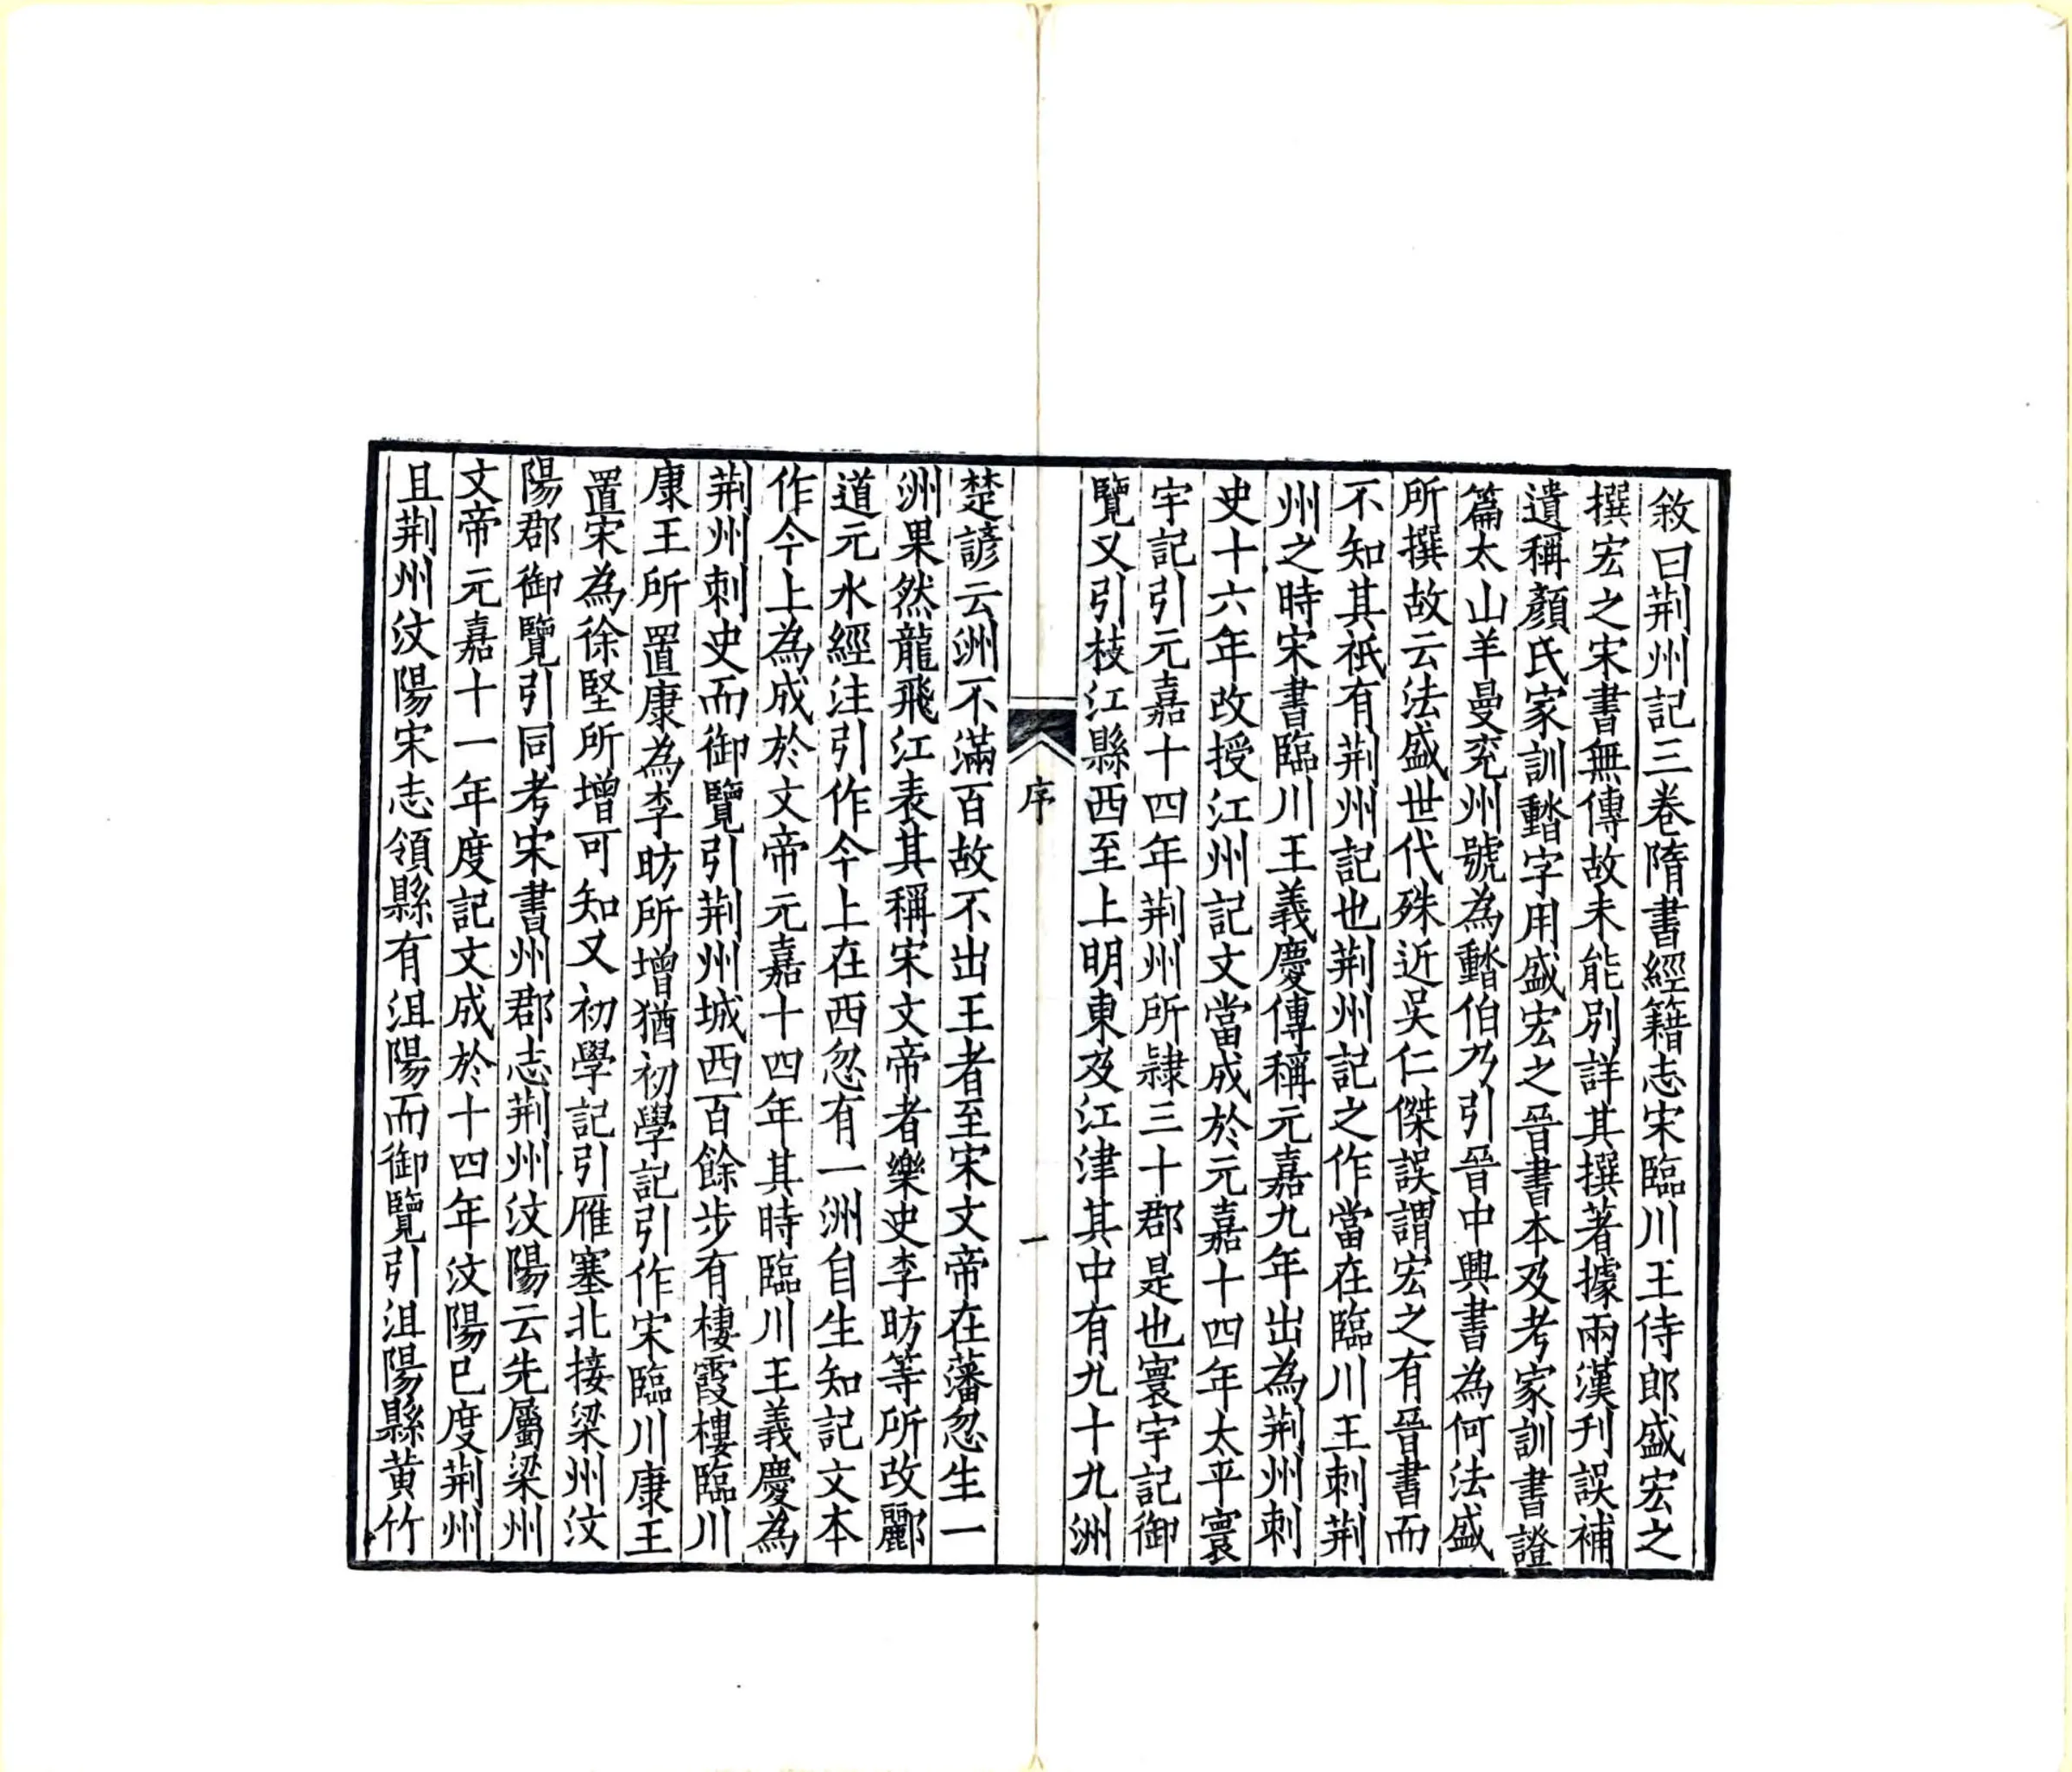 敘曰荆州記三卷隋書經籍志宋臨川王侍郎盛宏之
撰宏之宋書無傳故未能別詳其撰著據兩漢刋誤補
遺稱顏氏家訓䵬字用盛宏之晉書本及考家訓書證
篇太山羊曼兖州號為䵬伯乃引晉中興書為何法盛
所撰故云法盛世代殊近吳仁傑誤謂宏之有晉書而
不知其祇有荆州記也荆州記之作當在臨川王刺荆
州之時宋書臨川王義慶傳稱元嘉九年出為荆州刺
史十六年改授江州記文當成於元嘉十四年太平寰
宇記引元嘉十四年荆州所隷三十郡是也寰宇記御
覽又引枝江縣西至上明東及江津其中有九十九洲
序
一
楚諺云洲不滿百故不出王者至宋文帝在藩忽生一
洲果然龍飛江表其稱宋文帝者樂史李昉等所改酈
道元水經注引作今上在西忽有一洲自生知記文本
作今上為成於文帝元嘉十四年其時臨川王義慶為
荆州刺史而御覽引荆州城西百餘步有棲霞樓臨川
康王所置康為李昉所增猶初學記引作宋臨川康王
置宋為徐堅所增可知又初學記引雁塞北接梁州汶
陽郡御覽引同考宋書州郡志荆州汶陽云先屬梁州
文帝元嘉十一年度記文成於十四年汶陽已度荆州
且荆州汶陽宋志領縣有沮陽而御覽引沮陽縣黃竹